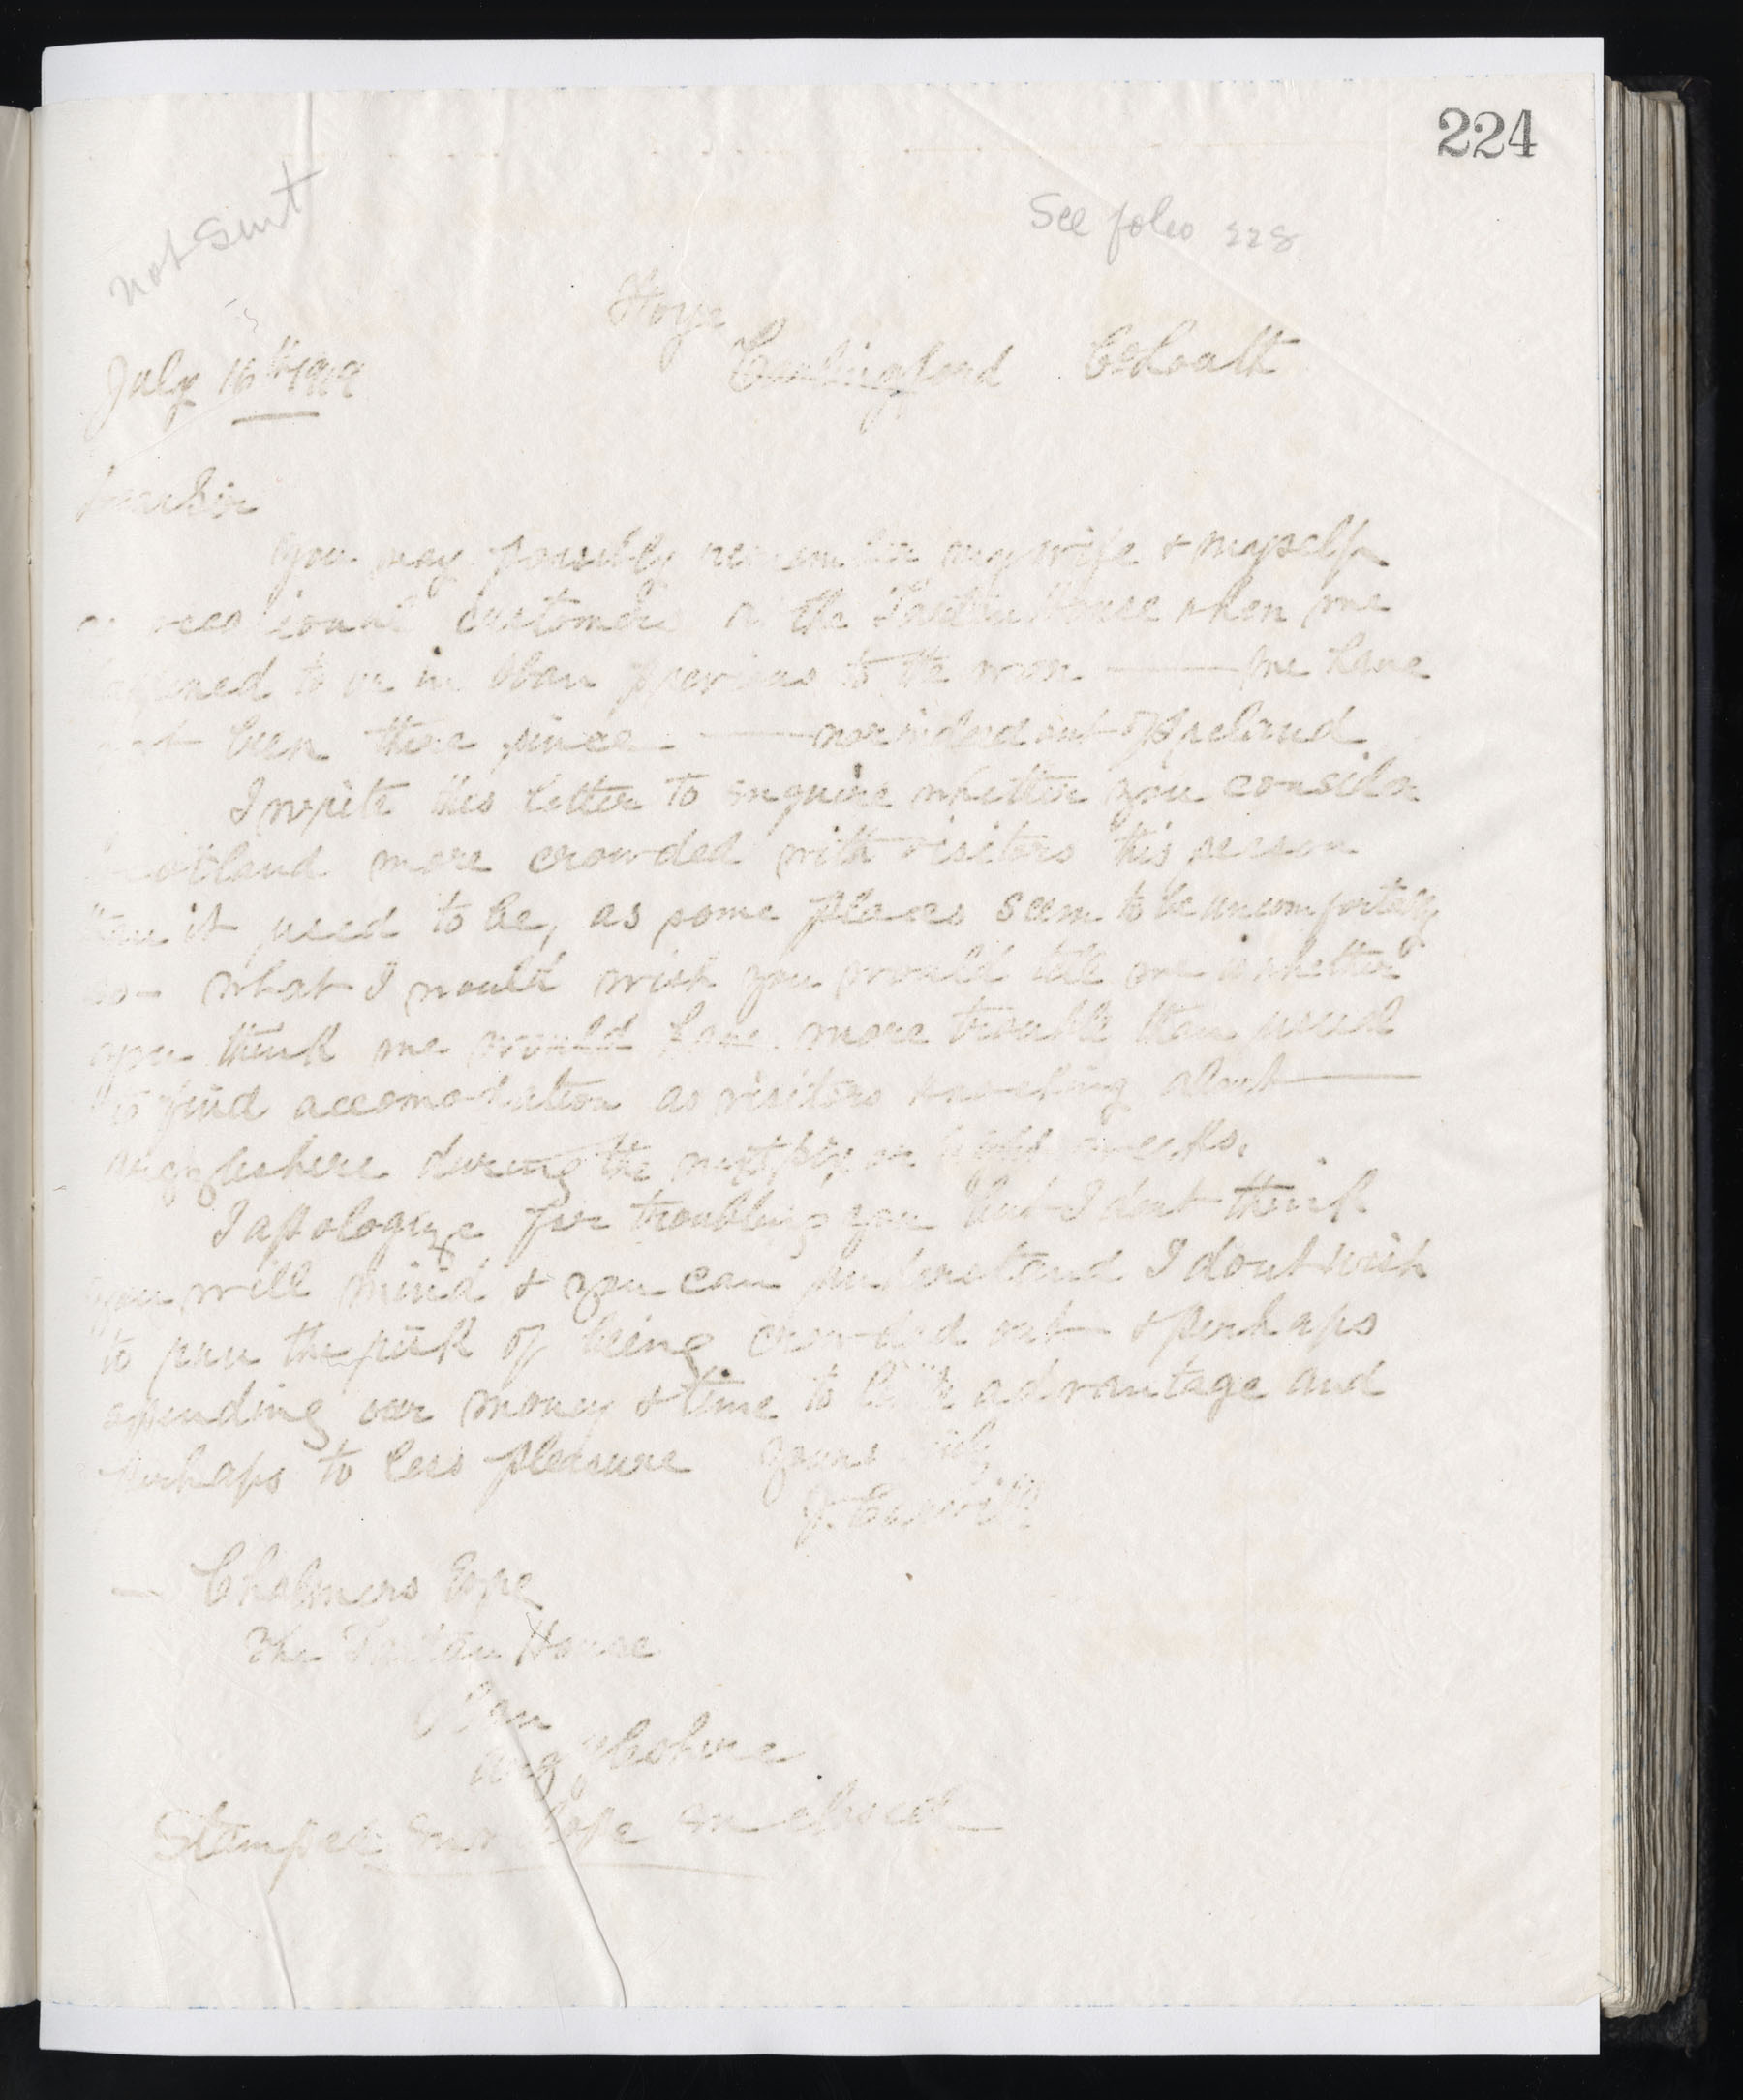 224
not sent
See folio 228
July 16th 1919
Carlingford Co Louth
Dear Sir
You may possibly remember my wife & myself
occasional customers at the Tartan House when we
happened to be in Oban previous to the war — we have
not been there since — nor indeed out of Ireland
I write this letter to enquire whether you consider
Scotland more crowded with visitors this season
than it used to be, as some places seem to be uncomfortably
so — what I would wish you would tell me is whether
you think we would have more trouble than usual
to find accomodation as visitors travelling about —
Argyleshire during the next six or eight weeks.
I apologize for troubling you but I dont think
you will mind & you can understand I dont wish
to run the risk of being crowded out & perhaps
spending our money & time to little advantage and
perhaps to less pleasure Yours truly
— Chalmers Esqre
The Tartan House
Oban
Argyleshire
Stamped envelope enclosed